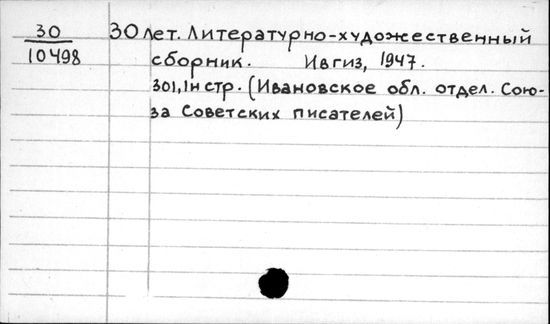 30
10498
30 лет. Литературно-художественный
сборник. Ивгиз, 1947.
301,1н стр. (Ивановское обл. отдел. Сою-
за Советских писателей)